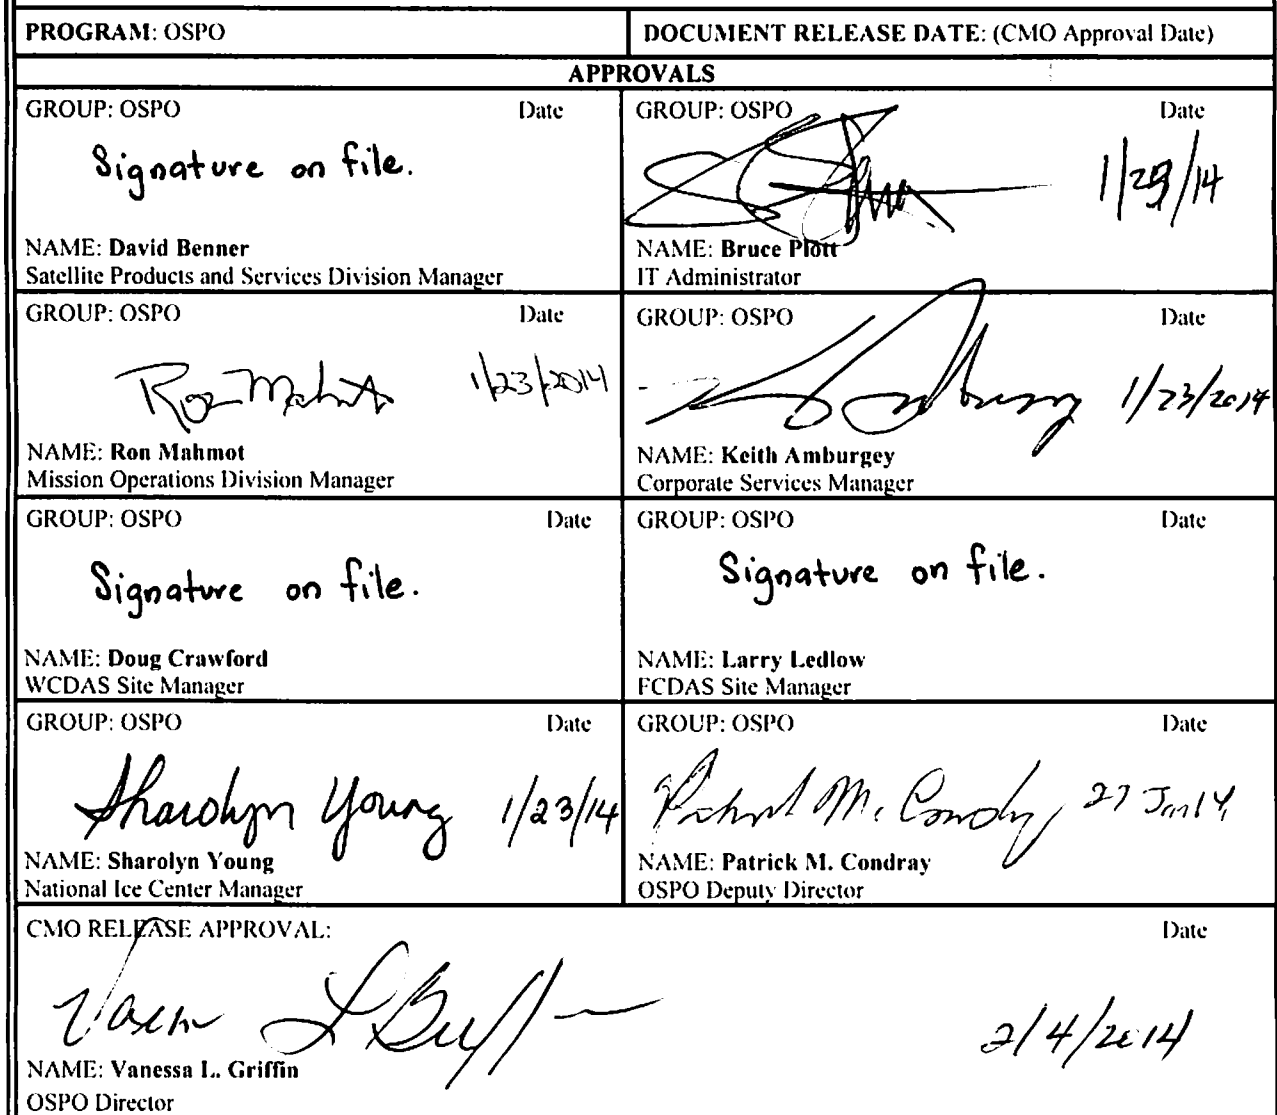 PROGRAM: OSPO
DOCUMENT RELEASE DATE: (CMO Approval Date)
APPROVALS
GROUP: OSPO Date
Signature on file.
NAME: David Benner
Satellite Products and Services Division Manager
GROUP: OSPO Date
1/29/14
NAME: Bruce Plott
IT Administrator
GROUP: OSPO Date
Ron Mahmot 1/23/2014
NAME: Ron Mahmot
Mission Operations Division Manager
GROUP: OSPO Date
1/23/2014
NAME: Keith Amburgey
Corporate Services Manager
GROUP: OSPO Date
Signature on file.
NAME: Doug Crawford
WCDAS Site Manager
GROUP: OSPO Date
Signature on file.
NAME: Larry Ledlow
FCDAS Site Manager
GROUP: OSPO Date
Sharolyn Young 1/23/14
NAME: Sharolyn Young
National Ice Center Manager
GROUP: OSPO Date
Patrick M. Condray 27 Jan 14
NAME: Patrick M. Condray
OSPO Deputy Director
CMO RELEASE APPROVAL: Date
2/4/2014
NAME: Vanessa L. Griffin
OSPO Director